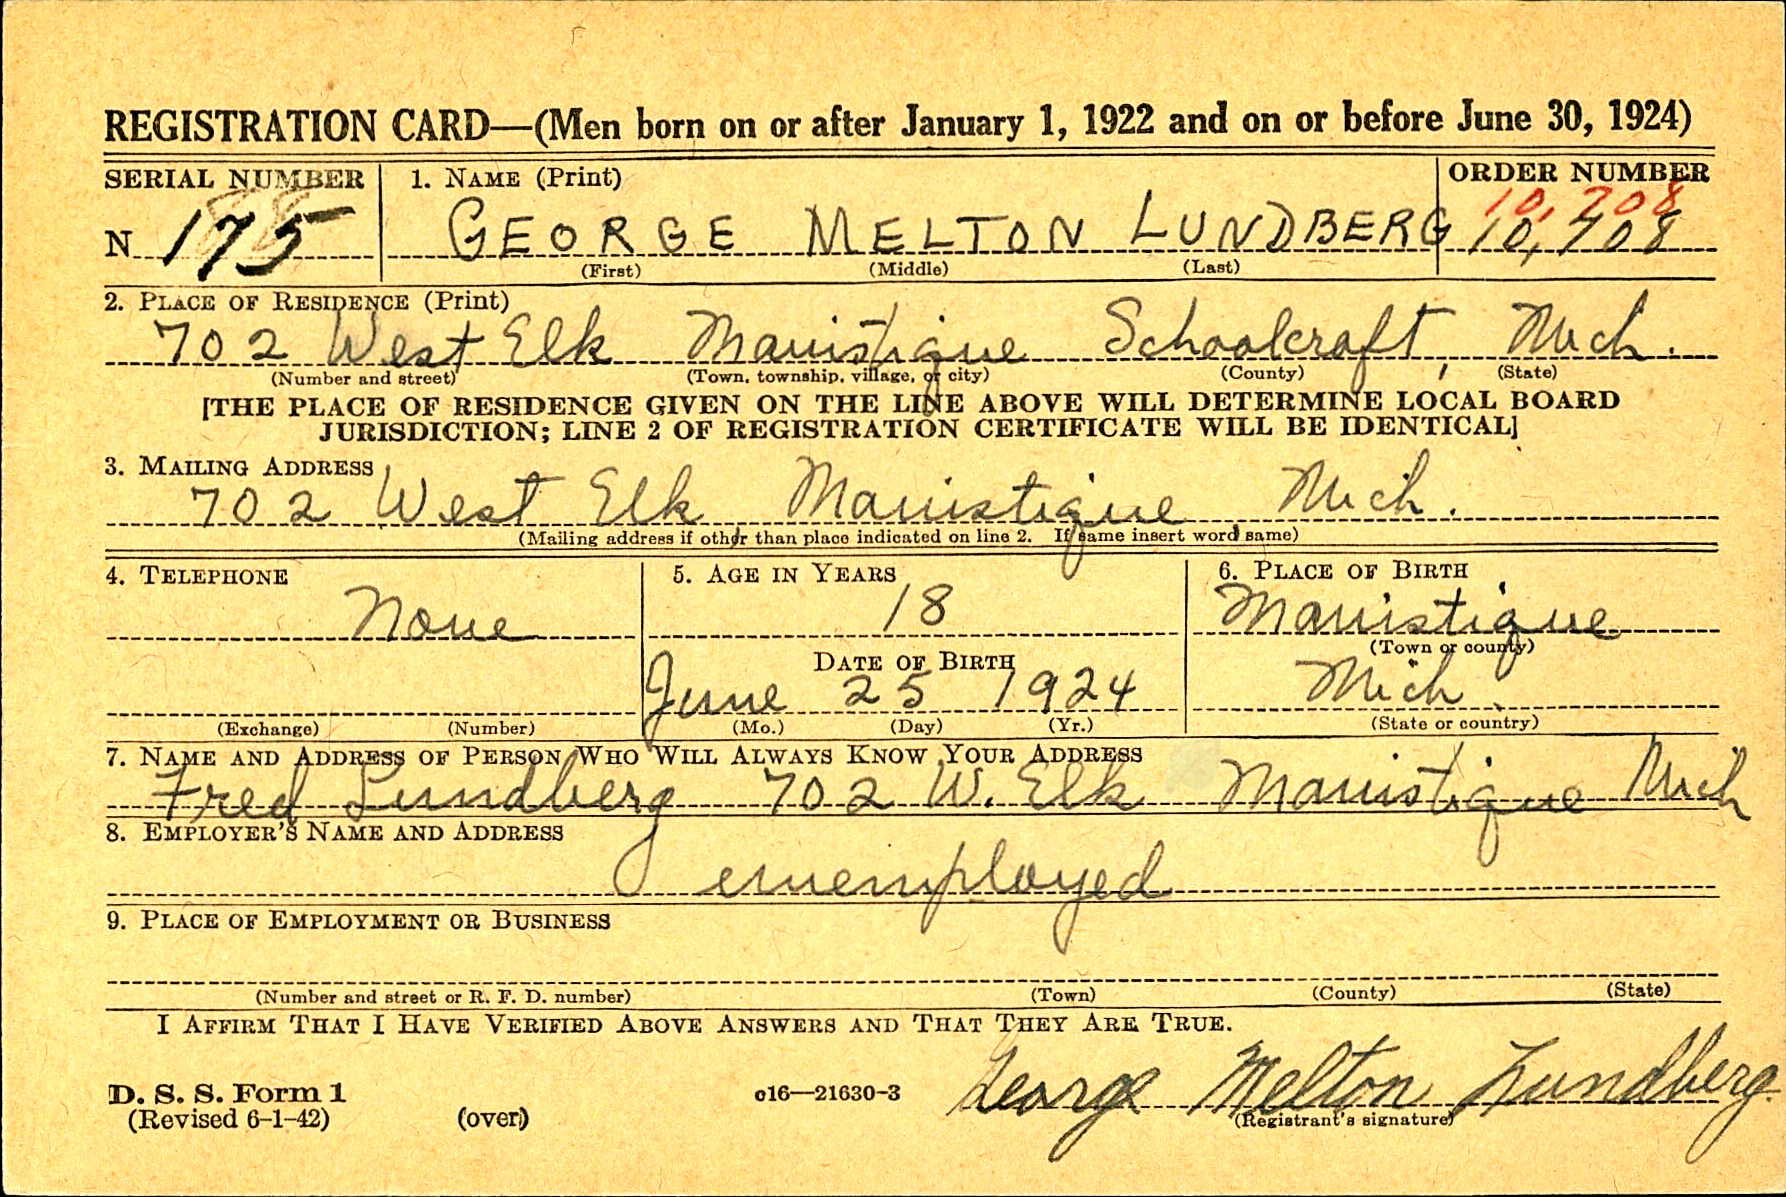 REGISTRATION CARD—(Men born on or after January 1, 1922 and on or before June 30, 1924)
SERIAL NUMBER 1. NAME (Print) ORDER NUMBER
10,708
N 175 GEORGE MELTON LUNDBERG 10,708
(First) (Middle) (Last)
2. PLACE OF RESIDENCE (Print)
702 West Elk Manistique Schoolcraft, Mich.
(Number and street) (Town, township, village, or city) (County) (State)
[THE PLACE OF RESIDENCE GIVEN ON THE LINE ABOVE WILL DETERMINE LOCAL BOARD
JURISDICTION; LINE 2 OF REGISTRATION CERTIFICATE WILL BE IDENTICAL]
3. MAILING ADDRESS
702 West Elk, Manistique, Mich.
(Mailing address if other than place indicated on line 2. If same insert word same)
4. TELEPHONE 5. AGE IN YEARS 6. PLACE OF BIRTH
None 18 Manistique
(Town or county)
DATE OF BIRTH
June 25 1924 Mich.
(Exchange) (Number) (Mo.) (Day) (Yr.) (State or country)
7. NAME AND ADDRESS OF PERSON WHO WILL ALWAYS KNOW YOUR ADDRESS
Fred Lundberg 702 W. Elk Manistique Mich
8. EMPLOYER'S NAME AND ADDRESS
enemployed
9. PLACE OF EMPLOYMENT OR BUSINESS
(Number and street or R. F. D. number) (Town) (County) (State)
I AFFIRM THAT I HAVE VERIFIED ABOVE ANSWERS AND THAT THEY ARE TRUE.
D. S. S. Form 1 c16—21630-3 George Melton Lundberg
(Revised 6-1-42) (over) (Registrant's signature)